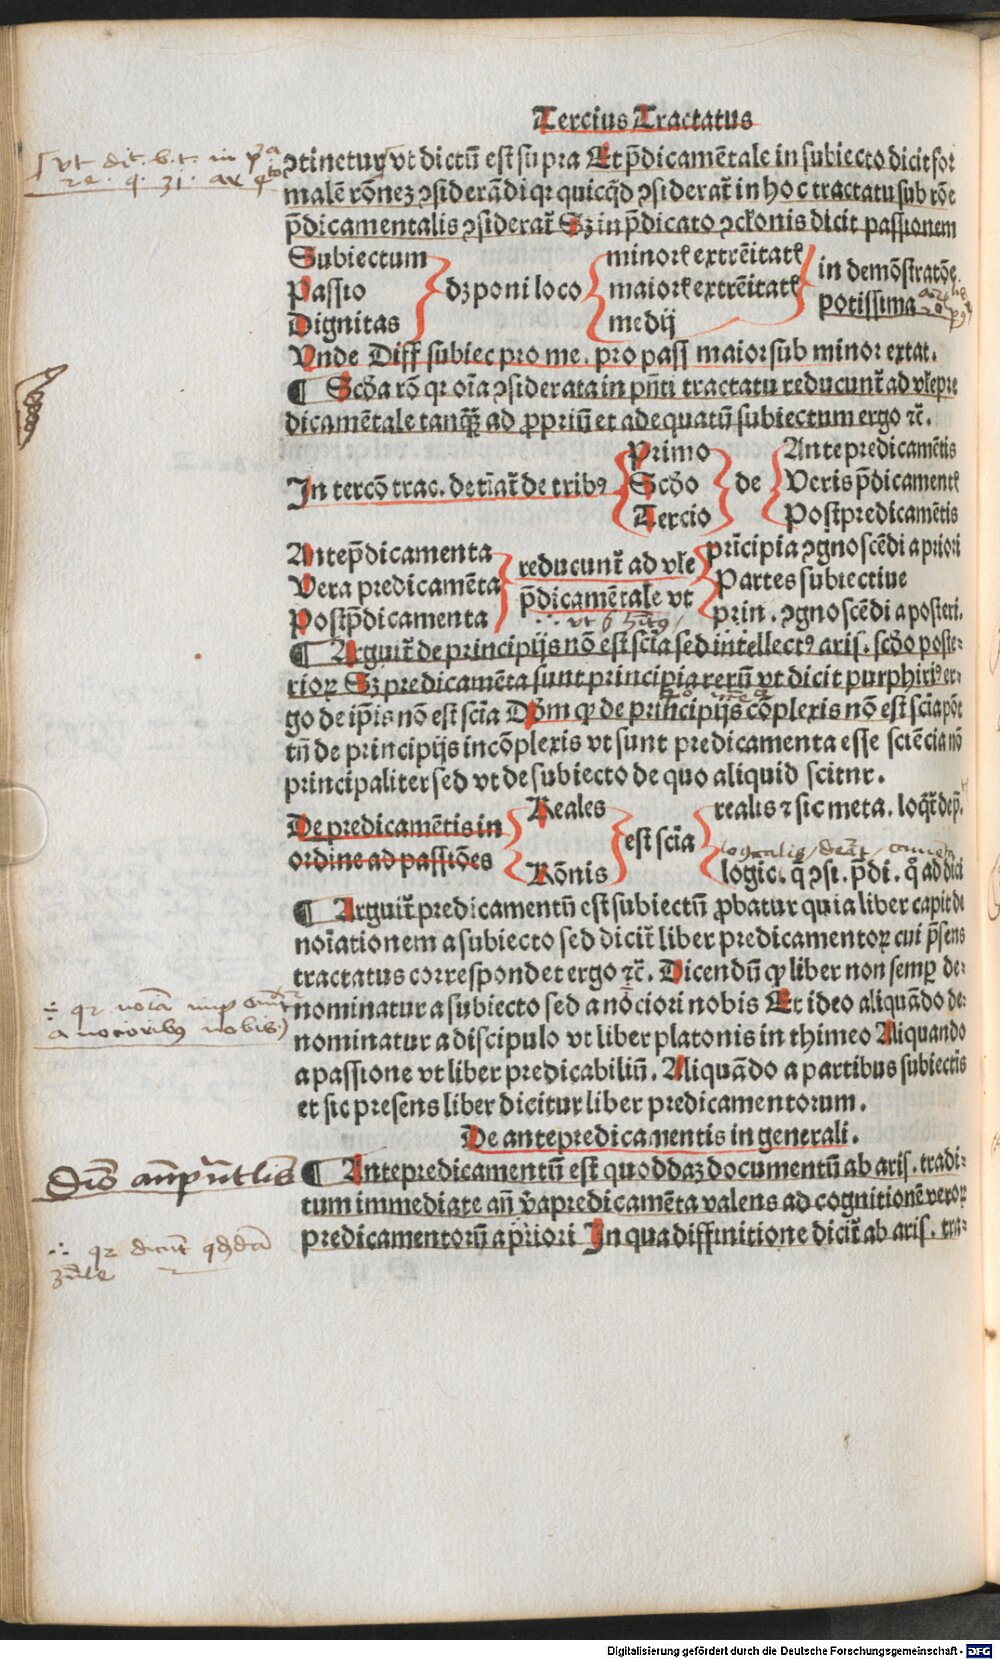 Tercius Tractatus
ꝯtinetur vt dictū est supra Et p̄dicamētale in subiecto dicit for
malē rōnez ꝯsiderādi qr quicqd ꝯsiderat̄ in hoc tractatu sub rōe
p̄dicamentalis ꝯsiderat̄ Sz in p̄dicato ꝯclonis dicit passionem
Subiectum
Passio
Dignitas
dz poni loco
minorꝭ extrēitatꝭ
maiorꝭ extrēitatꝭ
medij
in demōstratōe
potissima
Vnde Diff subiec pro me. pro pass maior sub minor extat.
¶ Scd̄a rō qr oīa ꝯsiderata in pn̄ti tractatu reducunt̄ ad vle pre
dicamētale tanqȝ ad ꝓpriū et adequatū subiectum ergo ⁊c̄.
In tercō trac. determīat̄ de tribꝰ
Primo
Scd̄o
Tercio
de
Antepredicamētis
Veris p̄dicamentꝭ
Postpredicamētis
Antep̄dicamenta
Vera predicamēta
Postp̄dicamenta
reducunt̄ ad vle
p̄dicamētale vt
prīcipia ꝯgnoscēdi a priori
Partes subiectiue
prin. ꝯgnoscēdi a posteri.
¶ Arguit̄ de principijs nō est scīa sed intellectꝰ aris. scd̄o poste⸗
rioꝝ Sz predicamēta sunt principia rerū vt dicit purphiriꝰ er⸗
go de ip̄is nō est scīa Dd̄m ꝙ de principijs cōplexis nō est scīa pōt
tn̄ de principijs incōplexis vt sunt predicamenta esse sciēcia nō
principaliter sed vt de subiecto de quo aliquid scitur.
De predicamētis in
ordine ad passiōes
Reales
Rōnis
est scīa
realis ⁊ sic meta. loqt̄ de p̄.
logic. q̄ ꝯsi. p̄di. q̄ ad dici
¶ Arguit̄ predicamentū est subiectū ꝓbatur quia liber capit de
noīationem a subiecto sed dicit̄ liber predicamentoꝝ cui p̄sens
tractatus correspondet ergo ⁊c̄. Dicendū ꝙ liber non semꝑ de⸗
nominatur a subiecto sed a nociori nobis Et ideo aliquādo de⸗
nominatur a discipulo vt liber platonis in thimeo Aliquando
a passione vt liber predicabiliū. Aliquādo a partibus subiectis
et sic presens liber dicitur liber predicamentorum.
De antepredicamentis in generali.
¶ Antepredicamentū est quoddaz documentū ab aris. tradi⸗
tum immediate an̄ v̄a predicamēta valens ad cognitionē veroꝝ
predicamentorū a priori In qua diffinitione dicit̄ ab aris. tra⸗
a nocoribꝰ nobis
Digitalisierung gefördert durch die Deutsche Forschungsgemeinschaft - DFG